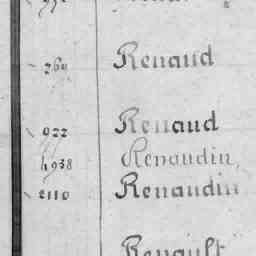 260 Renaud
922 Renaud
4938 Renaudin,
2110 Renaudin
Renault